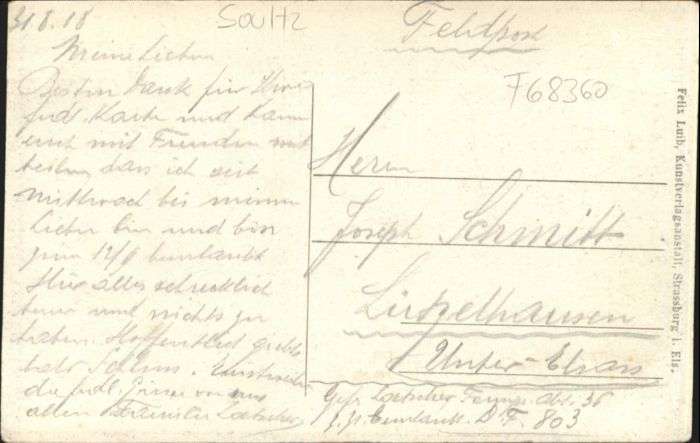 31.8.18
Soultz
Meine Lieben
Besten Dank für Ihre
frdl. Karte und kann
euch mit Freuden mit
teilen, dass ich seit
Mittwoch bei meinen
Lieben bin und bin
zum 12/9 beurlaubt
Hier alles schrecklich
teuer und nichts zu
haben. Hoffentlich giebts
bald Schluss.
die frdl. Grüsse von uns
allen Familie Loetscher
Feldpost
F68360
Herrn
Joseph Schmitt
Lützelhausen
Unter-Elsass
Gefr. Loetscher Abt. 36
beurlaubt D.F. 803
Felix Luib, Kunstverlagsanstalt, Strassburg i. Els.